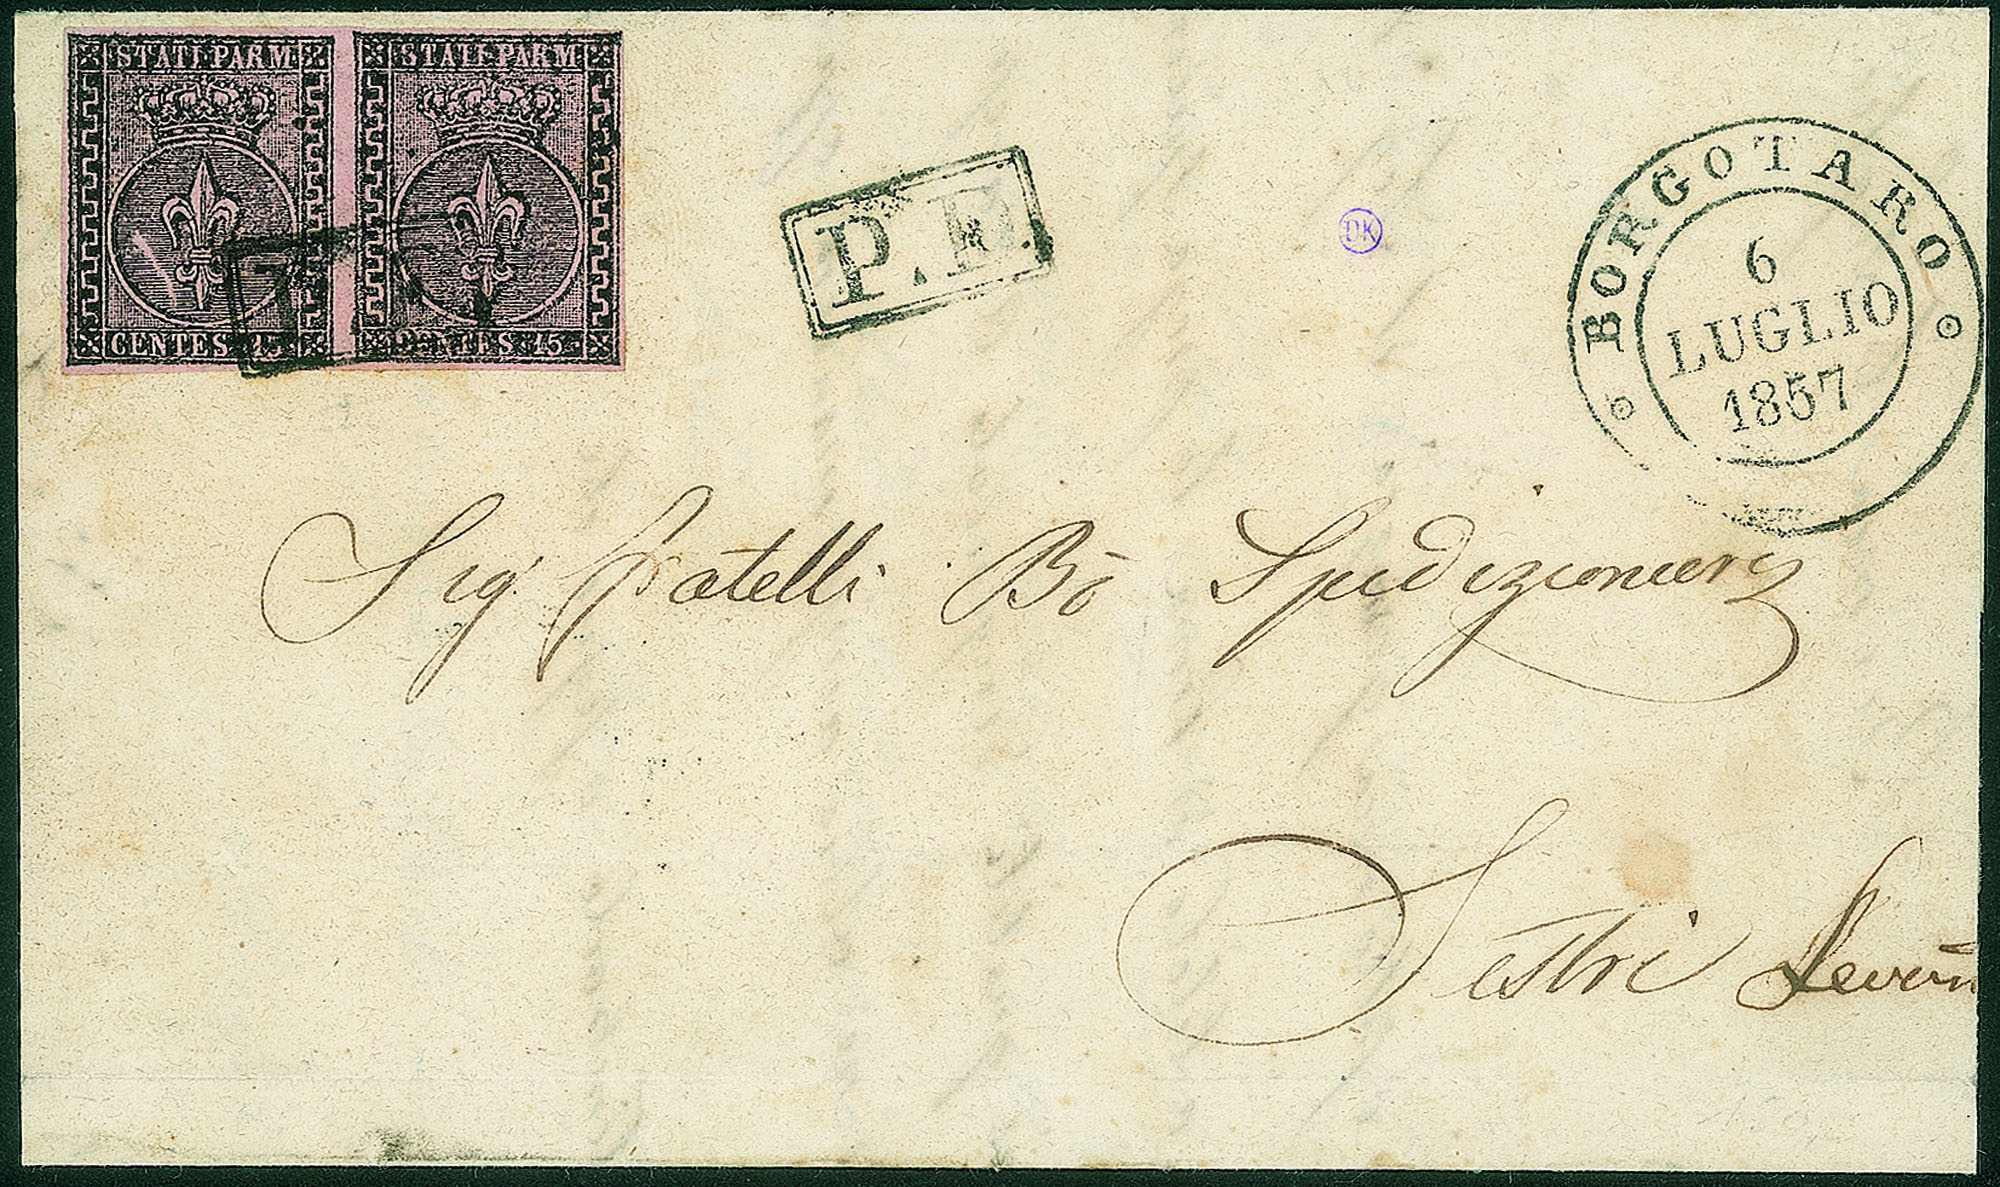 STATI PARM STATI PARM
CENTES. 15 CENTES. 15
P.D.
DK
BORGOTARO
6
LUGLIO
1857
Sigʳ fratelli Bò Spedizionieri
Sestri Levan